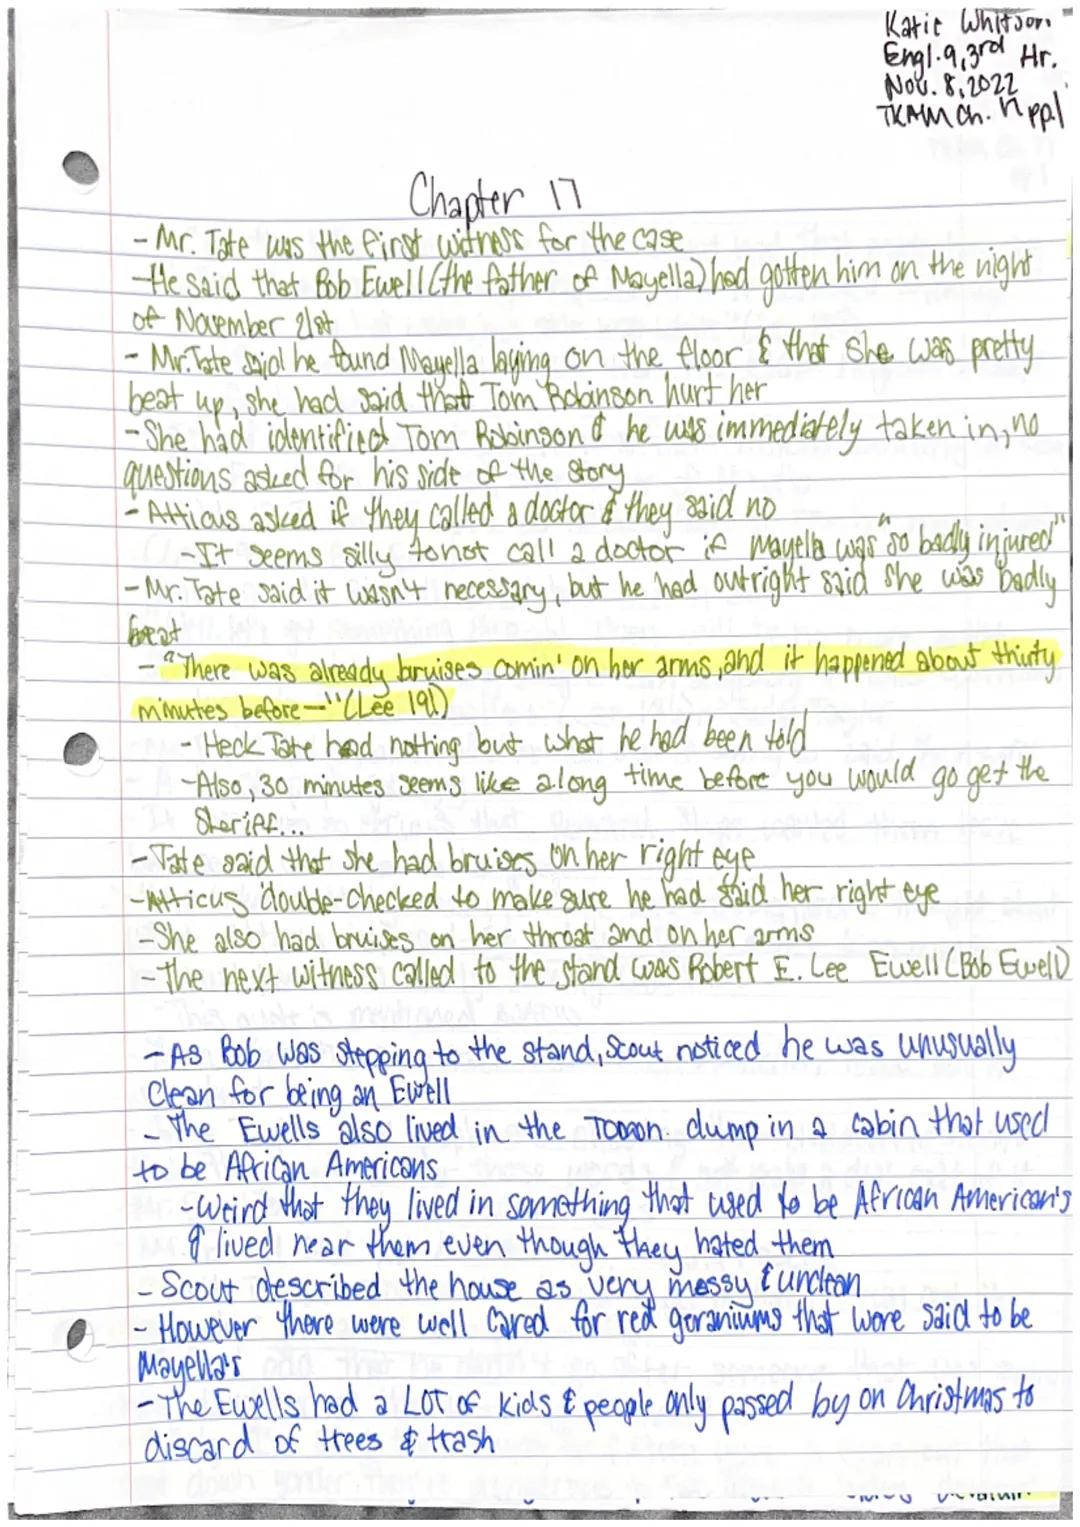 Katie Whitson
Engl.9, 3rd Hr.
Nov. 8, 2022
TKAM Ch. 17 pp.1
Chapter 17
- Mr. Tate was the first witness for the case
- He said that Bob Ewell (the father of Mayella) had gotten him on the night
of November 21st
- Mr. Tate said he found Mayella laying on the floor & that she was pretty
beat up, she had said that Tom Robinson hurt her
- She had identified Tom Robinson & he was immediately taken in, no
questions asked for his side of the story
- Atticus asked if they called a doctor & they said no
- It seems silly to not call a doctor if Mayella was "so badly injured"
- Mr. Tate said it wasn't necessary, but he had outright said she was badly
beat
- "There was already bruises comin' on her arms, and it happened about thirty
minutes before—" (Lee 191)
- Heck Tate had nothing but what he had been told
- Also, 30 minutes seems like a long time before you would go get the
Sheriff...
- Tate said that she had bruises on her right eye
- Atticus double-checked to make sure he had said her right eye
- She also had bruises on her throat and on her arms
- The next witness called to the stand was Robert E. Lee Ewell (Bob Ewell)
- As Bob was stepping to the stand, Scout noticed he was unusually
clean for being an Ewell
- The Ewells also lived in the Town dump in a cabin that used
to be African Americans
- Weird that they lived in something that used to be African American's
& lived near them even though they hated them
- Scout described the house as very messy & unclean
- However there were well cared for red geraniums that were said to be
Mayella's
- The Ewells had a LOT of kids & people only passed by on Christmas to
discard of trees & trash